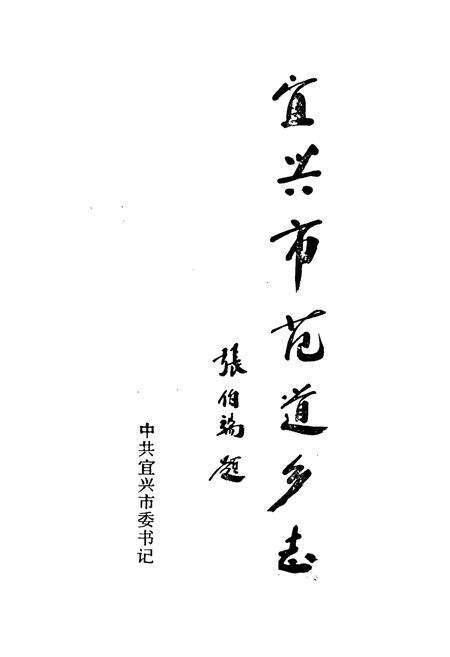 宜兴市范道乡志
張伯瑞題
中共宜兴市委书记